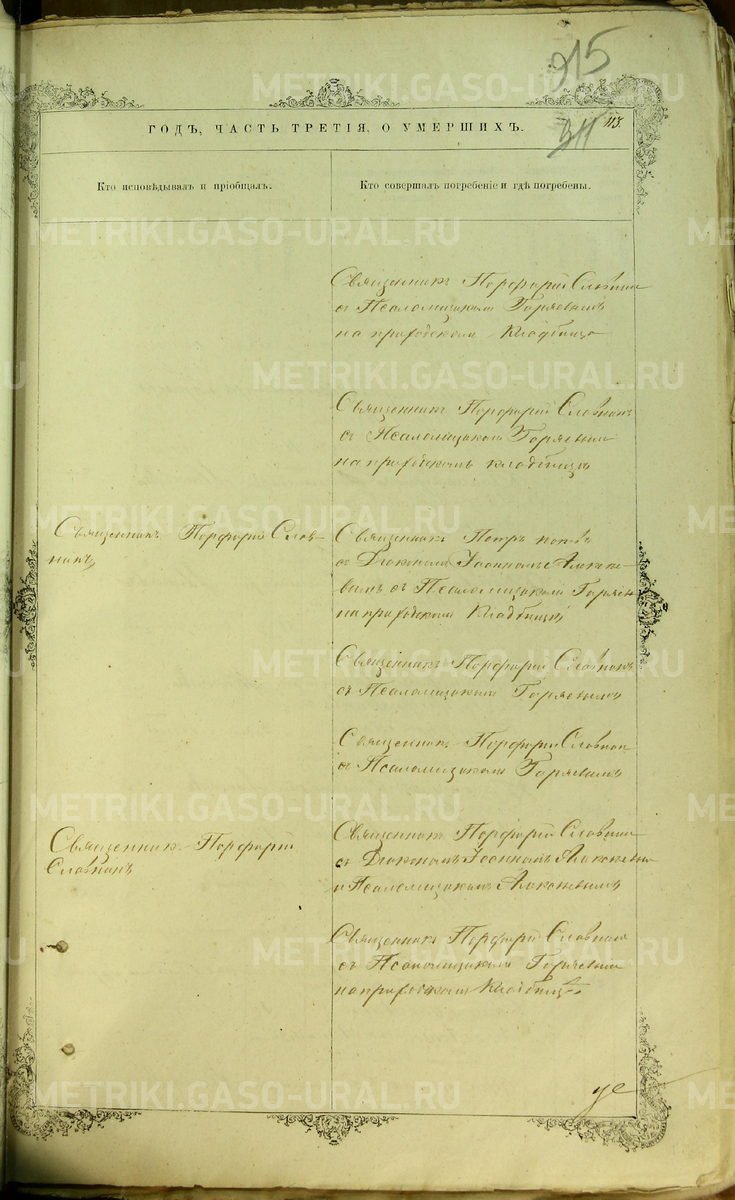 915
311
113.
ГОДЪ, ЧАСТЬ ТРЕТІЯ, О УМЕРШИХЪ.
Кто исповѣдывалъ и пріобщалъ.
Кто совершалъ погребеніе и гдѣ погребены.
Священникъ Порфирій Словнинъ
съ Псаломщикомъ Горяевымъ
на приходскомъ кладбищѣ
Священникъ Порфирій Словнинъ
съ Псаломщикомъ Горяевымъ
на приходскомъ кладбищѣ
Священникъ Порфирій Слов-
нинъ
Священникъ Петръ
съ Діакономъ Іоанномъ
съ Псаломщикомъ
на приходскомъ кладбищѣ
Священникъ Порфирій Словнинъ
съ Псаломщикомъ Горяевымъ
Священникъ Порфирій Словнинъ
съ Псаломщикомъ Горяевымъ
Священникъ Порфирій
Словнинъ
Священникъ Порфирій Словнинъ
съ Діакономъ Іоанномъ
и Псаломщикомъ
Священникъ Порфирій Словнинъ
съ Псаломщикомъ Горяевымъ
на приходскомъ кладбищѣ
METRIKI.GASO-URAL.RU